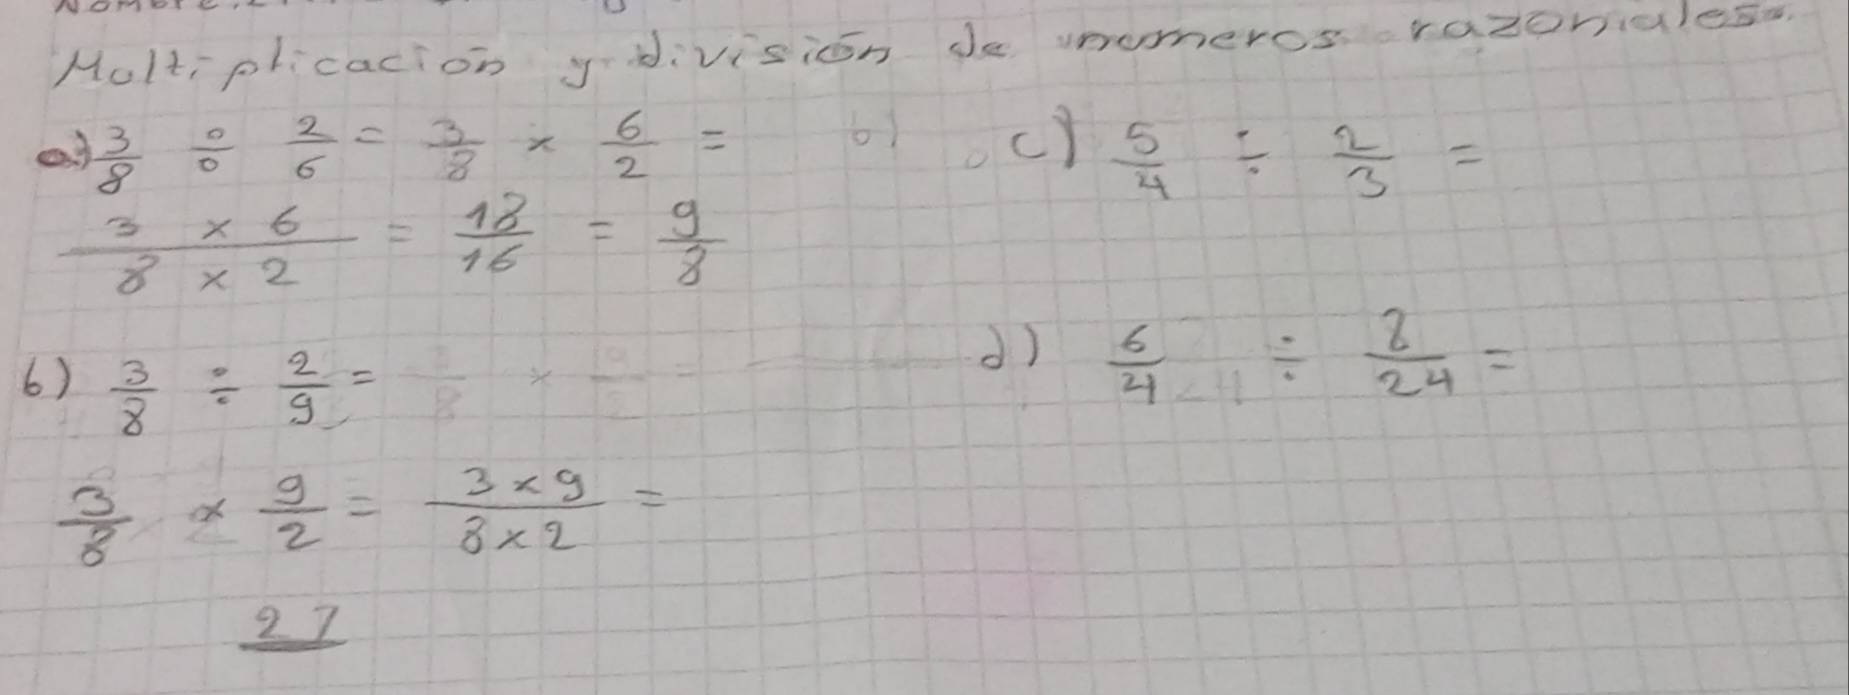 Multiplicación y división de numeros razoniales
a) 3/8 ÷ 2/6 = 3/8 × 6/2 =
3 × 6 / 8 × 2 = 18/16 = 9/8
b) 3/8 ÷ 2/9 =
3/8 × 9/2 = 3×9 / 8×2 =
27
c) 5/4 ÷ 2/3 =
d) 6/4 ÷ 8/24 =